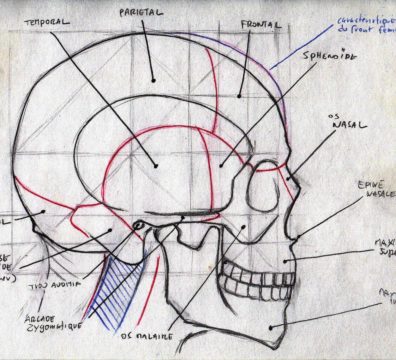 PARIETAL
TEMPORAL
FRONTAL
caractéristique
du front fémi
SPHENOÏDE
OS
NASAL
EPINE
NASALE
MAXI
SUPE
TROU AUDITIF
ARCADE
ZYGOMATIQUE
OS MALAIRE